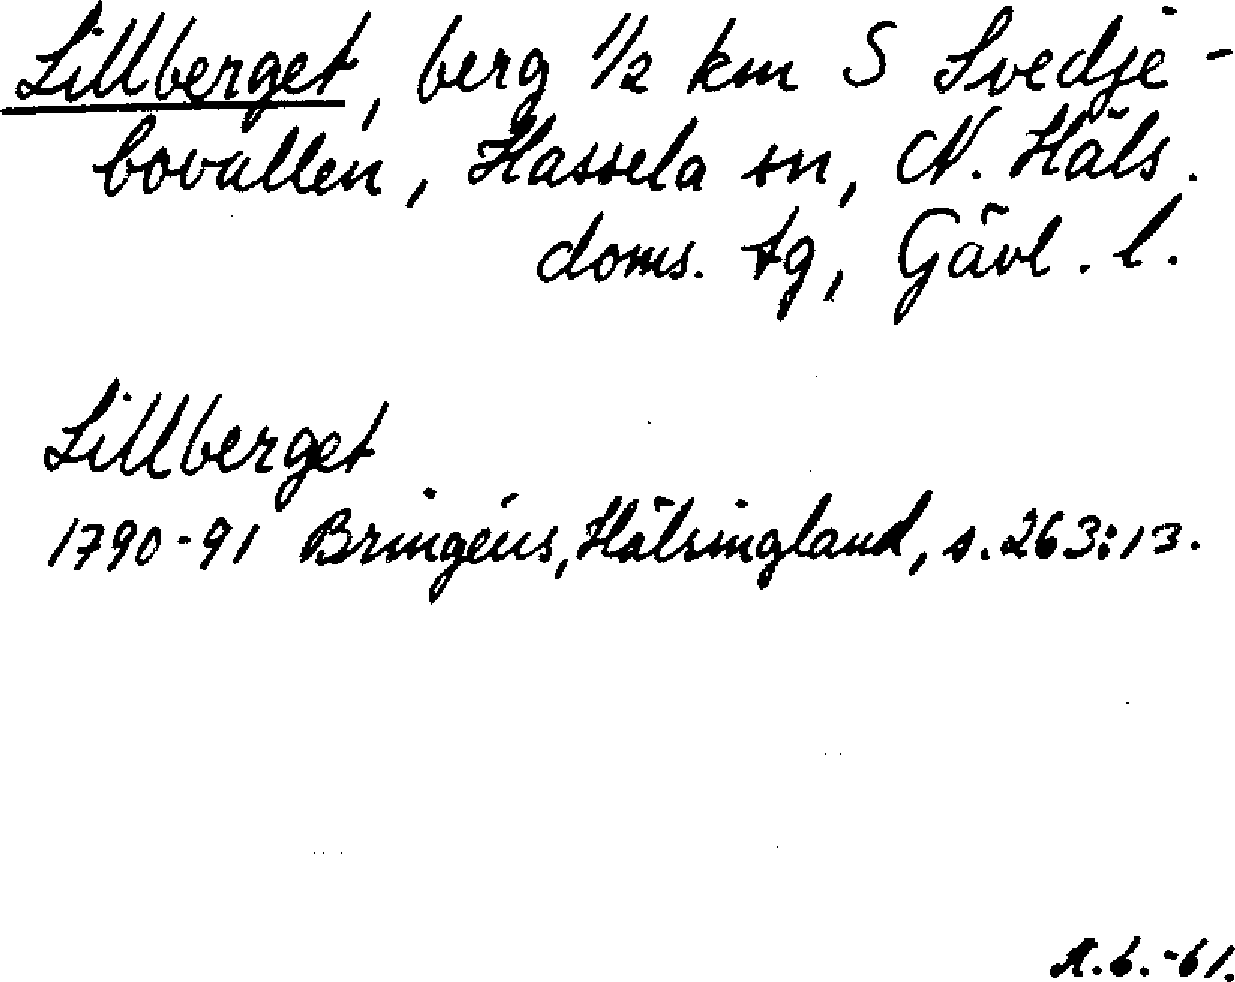 Lillberget, berg 1/2 km S Svedje-
bovallen, Hassela sn, N. Häls.
doms. tg, Gävl. l.
Lillberget
1790-91 Bringéus, Hälsingland, s. 263:13.
A.b.-61.